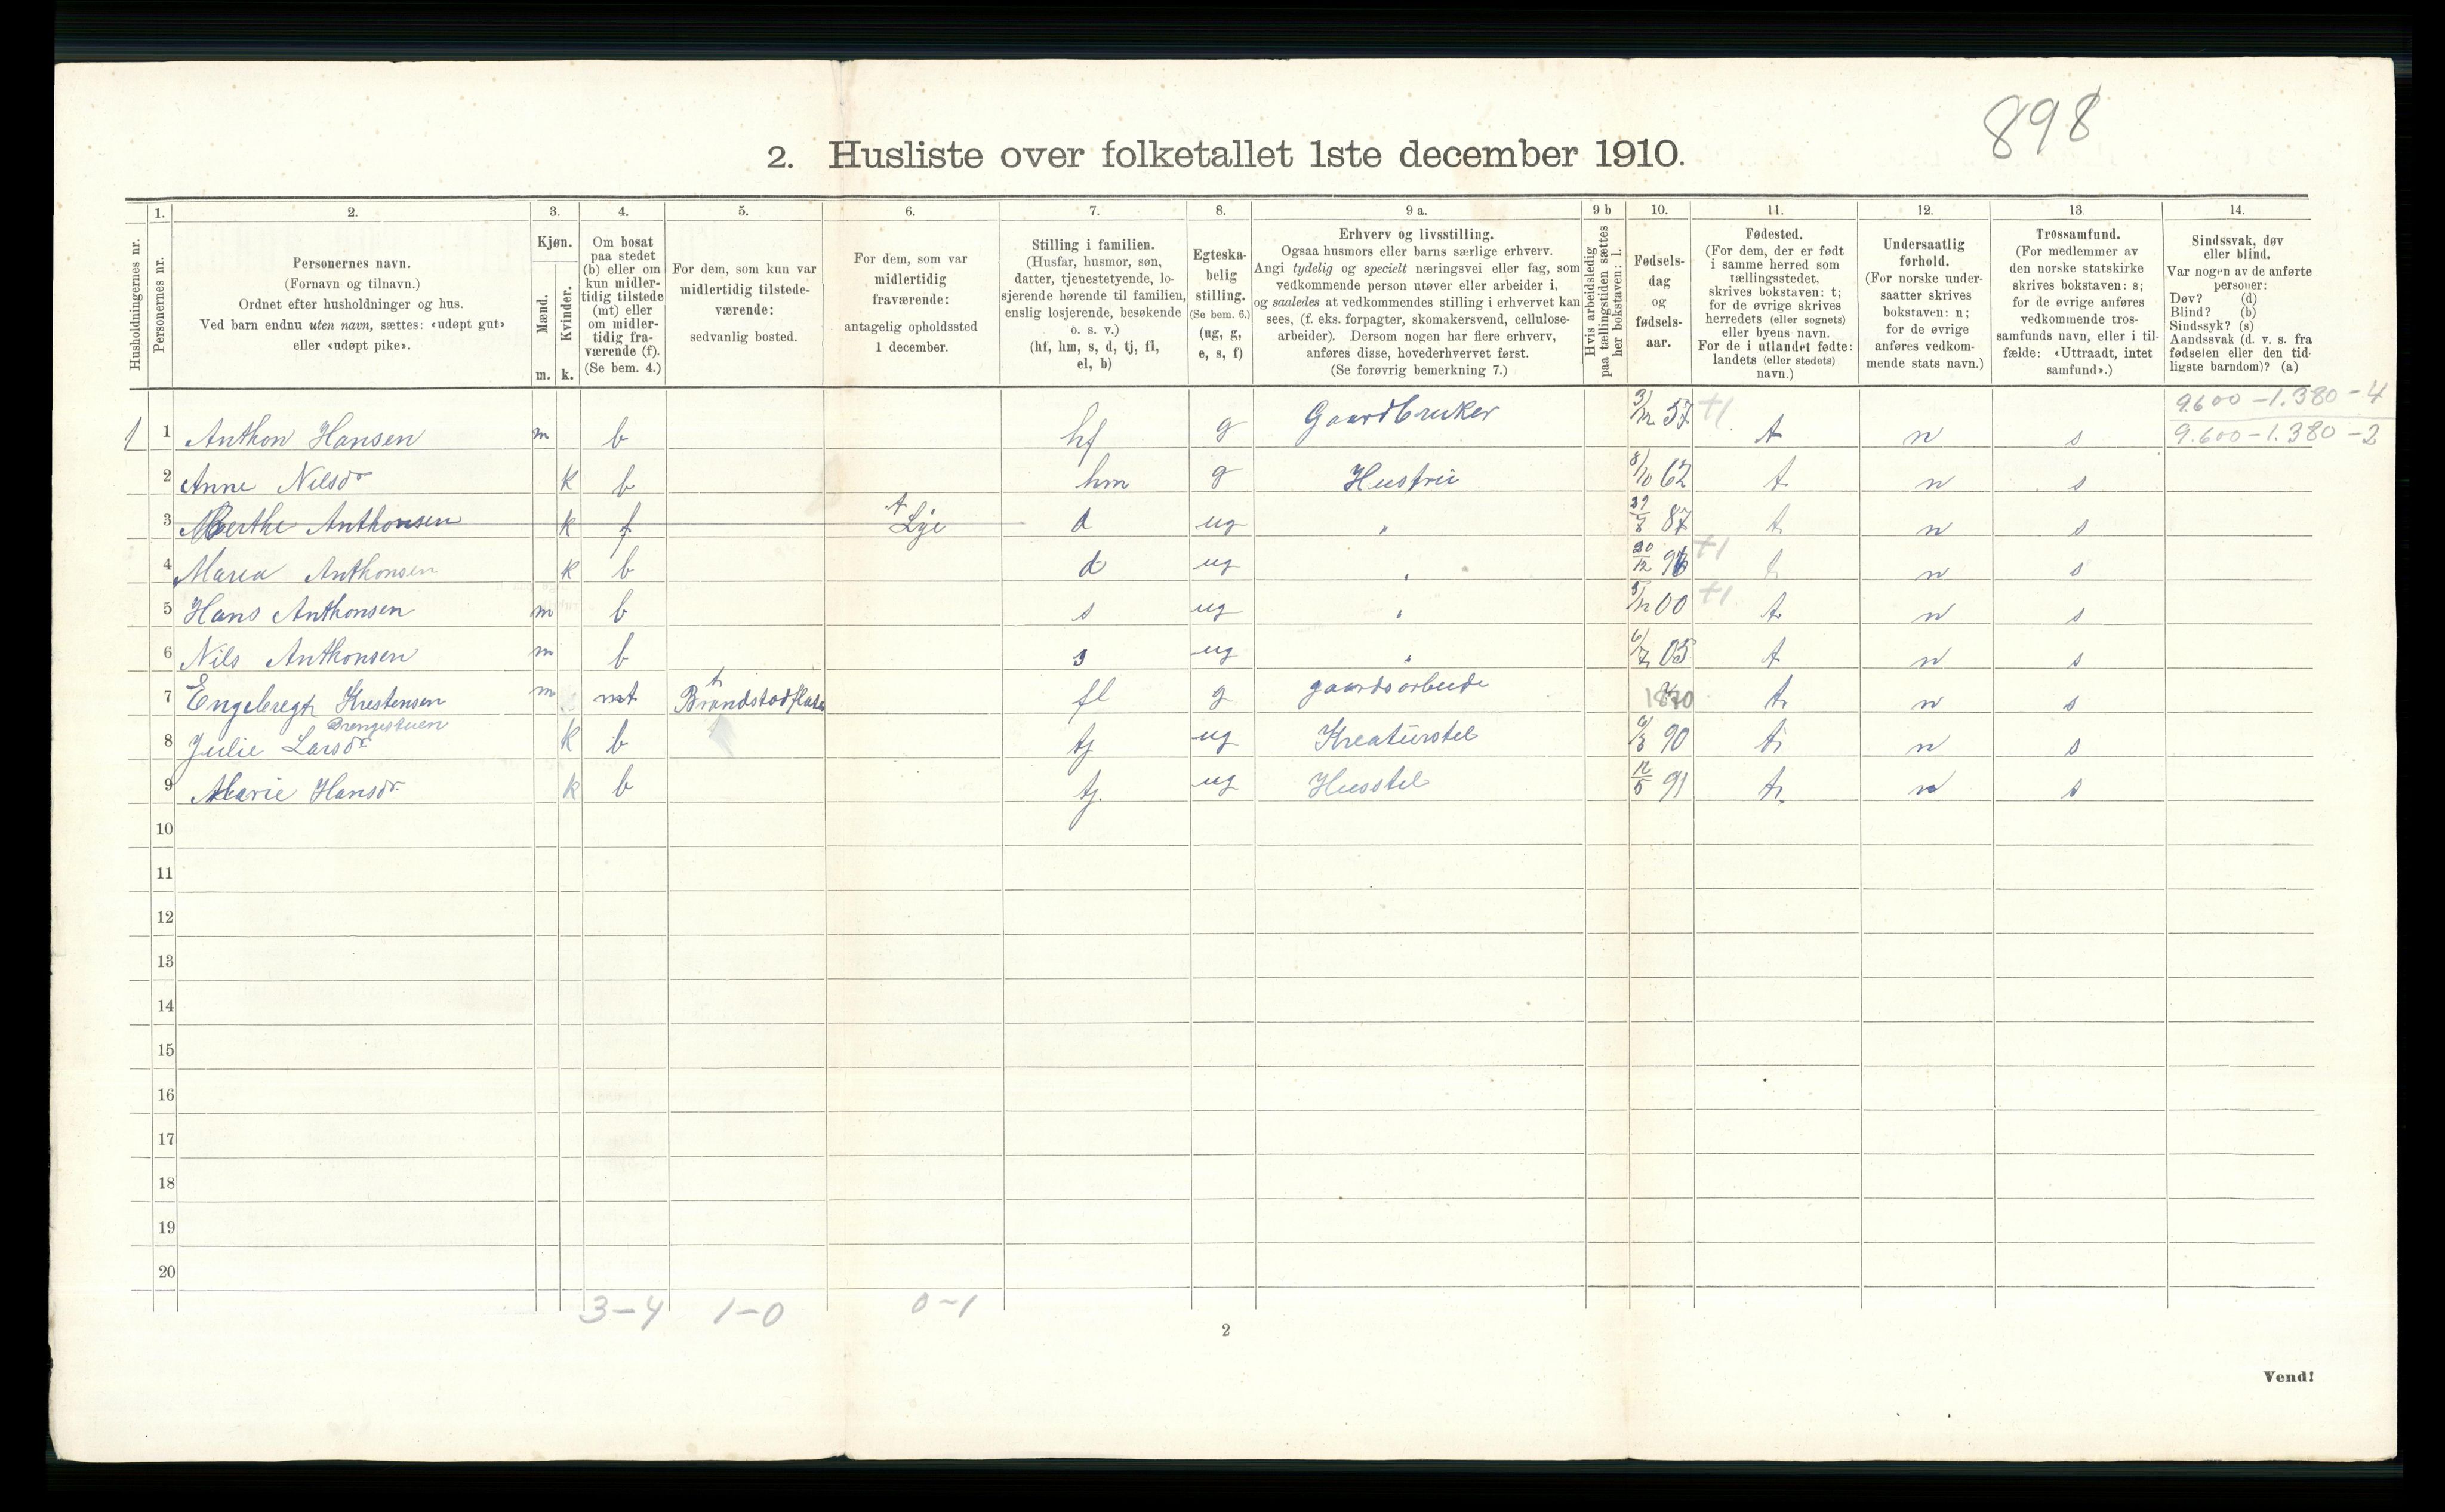 898
2. Husliste over folketallet 1ste december 1910.
1. 2. 3. 4. 5. 6. 7. 8. 9 a. 9 b 10. 11. 12. 13 14.
Husholdningernes nr.
Personernes nr.
Personernes navn.
(Fornavn og tilnavn.)
Ordnet efter husholdninger og hus.
Ved barn endnu uten navn, sættes: «udøpt gut»
eller «udøpt pike».
Kjøn.
Mænd.
Kvinder.
m. k.
Om bosat
paa stedet
(b) eller om
kun midler-
tidig tilstede
(mt) eller
om midler-
tidig fra-
værende (f).
(Se bem. 4.)
For dem, som kun var
midlertidig tilstede-
værende:
sedvanlig bosted.
For dem, som var
midlertidig
fraværende:
antagelig opholdssted
1 december.
Stilling i familien.
(Husfar, husmor, søn,
datter, tjenestetyende, lo-
sjerende hørende til familien,
enslig losjerende, besøkende
o. s. v.)
(hf, hm, s, d, tj, fl,
el, b)
Egteska-
belig
stilling.
(Se bem. 6.)
(ug, g,
e, s, f)
Erhverv og livsstilling.
Ogsaa husmors eller barns særlige erhverv.
Angi tydelig og specielt næringsvei eller fag, som
vedkommende person utøver eller arbeider i,
og saaledes at vedkommendes stilling i erhvervet kan
sees, (f. eks. forpagter, skomakersvend, cellulose-
arbeider). Dersom nogen har flere erhverv,
anføres disse, hovederhvervet først.
(Se forøvrig bemerkning 7.)
Hvis arbeidsledig
paa tællingstiden sættes
her bokstaven: l.
Fødsels-
dag
og
fødsels-
aar.
Fødested.
(For dem, der er født
i samme herred som
tællingsstedet,
skrives bokstaven: t;
for de øvrige skrives
herredets (eller sognets)
eller byens navn.
For de i utlandet fødte:
landets (eller stedets)
navn.)
Undersaatlig
forhold.
(For norske under-
saatter skrives
bokstaven: n;
for de øvrige
anføres vedkom-
mende stats navn.)
Trossamfund.
(For medlemmer av
den norske statskirke
skrives bokstaven: s;
for de øvrige anføres
vedkommende tros-
samfunds navn, eller i til-
fælde: «Uttraadt, intet
samfund».)
Sindssvak, døv
eller blind.
Var nogen av de anførte
personer:
Døv? (d)
Blind? (b)
Sindssyk? (s)
Aandssvak (d. v. s. fra
fødselen eller den tid-
ligste barndom)? (a)
9.600 - 1.380 - 4
9.600 - 1.380 - 2
1 1 Anthon Hansen m b hf g Gaardbruker 3/12 57 +1 t n s
2 Anne Nilsdr k b hm g Hustru 8/10 62 t n s
3 Berthe Anthonsen k f t Lye d ug " 27/7 87 t n s
4 Maria Anthonsen k b d ug " 20/12 96 +1 t n s
5 Hans Anthonsen m b s ug " 5/12 00 +1 t n s
6 Nils Anthonsen m b s ug " 6/7 05 t n s
7 Engebregt Krestensen m mt t Brandstadflaten fl g gaardsarbeide 1870 t n s
Drengestuen
8 Julie Larsdr k b tj ug Kreaturstel 6/3 90 t n s
9 Marie Hansdr k b tj. ug Husstel 12/5 91 t n s
10
11
12
13
14
15
16
17
18
19
20
3-4 1-0 0-1
2
Vend!